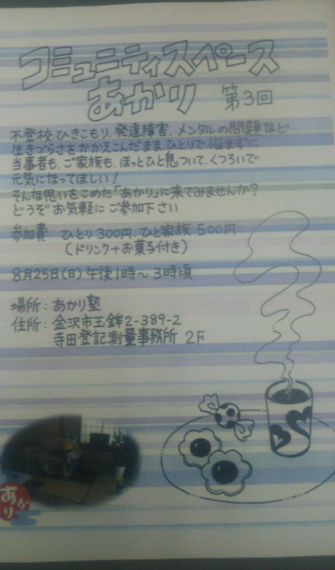 コミュニティスペース
あかり 第3回
不登校、ひきこもり、発達障害、メンタルの問題など
生きづらさをかかえこんだまま、ひとりで悩まずに
当事者も、ご家族も、ほっとひと息ついて、くつろいで
元気になってほしい!
そんな思いをこめた「あかり」に来てみませんか?
どうぞお気軽にご参加下さい
参加費 ひとり300円、ひと家族500円
(ドリンク+お菓子付き)
8月25日(日)午後1時〜3時頃
場所:あかり塾
住所:金沢市玉鉾2-389-2
寺田登記測量事務所 2F
あかり